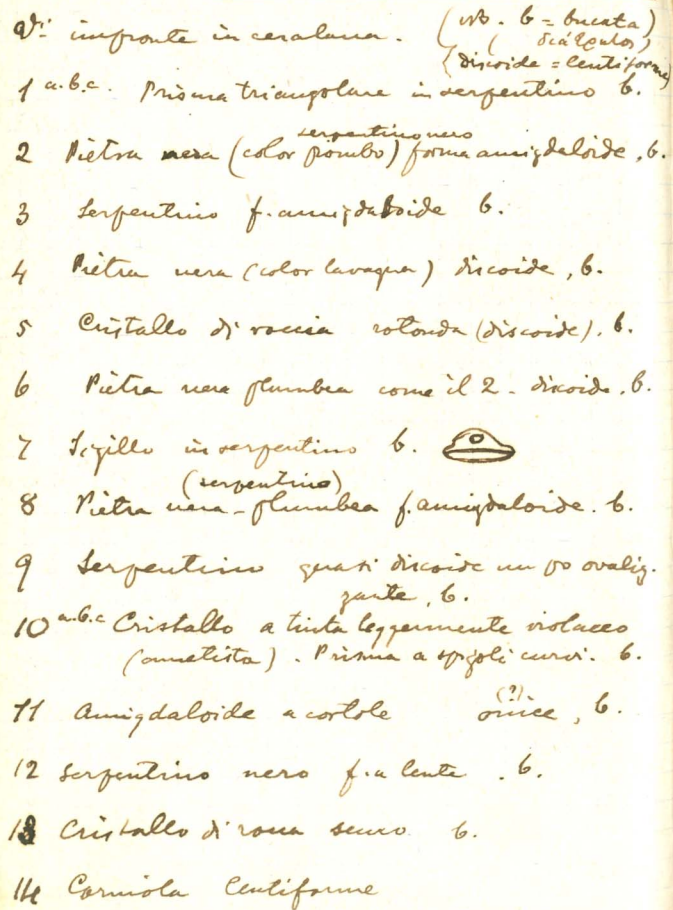 impronte in ceralacca. (nb. b = bucata)
(διάτρητος)
(discoide = lentiforme)
1 a.b.c. Prisma triangolare in serpentino b.
serpentino nero
2 Pietra nera (color piombo) forma amigdaloide, b.
3 Serpentino f. amigdaloide b.
4 Pietra nera (color lavagna) discoide, b.
5 Cristallo di roccia rotonda (discoide). b.
6 Pietra nera plumbea come il 2 - discoide. b.
7 Sigillo in serpentino b.
(serpentino)
8 Pietra nera-plumbea f. amigdaloide. b.
9 Serpentino quasi discoide un po ovaliz-
zante, b.
10 a.b.c Cristallo a tinta leggermente violacea
(ametista). Prisma a spigoli curvi. b.
(?)
11 Amigdaloide a costole onice, b.
12 Serpentino nero f. a lente. b.
13 Cristallo di rocca scuro b.
14 Corniola lentiforme